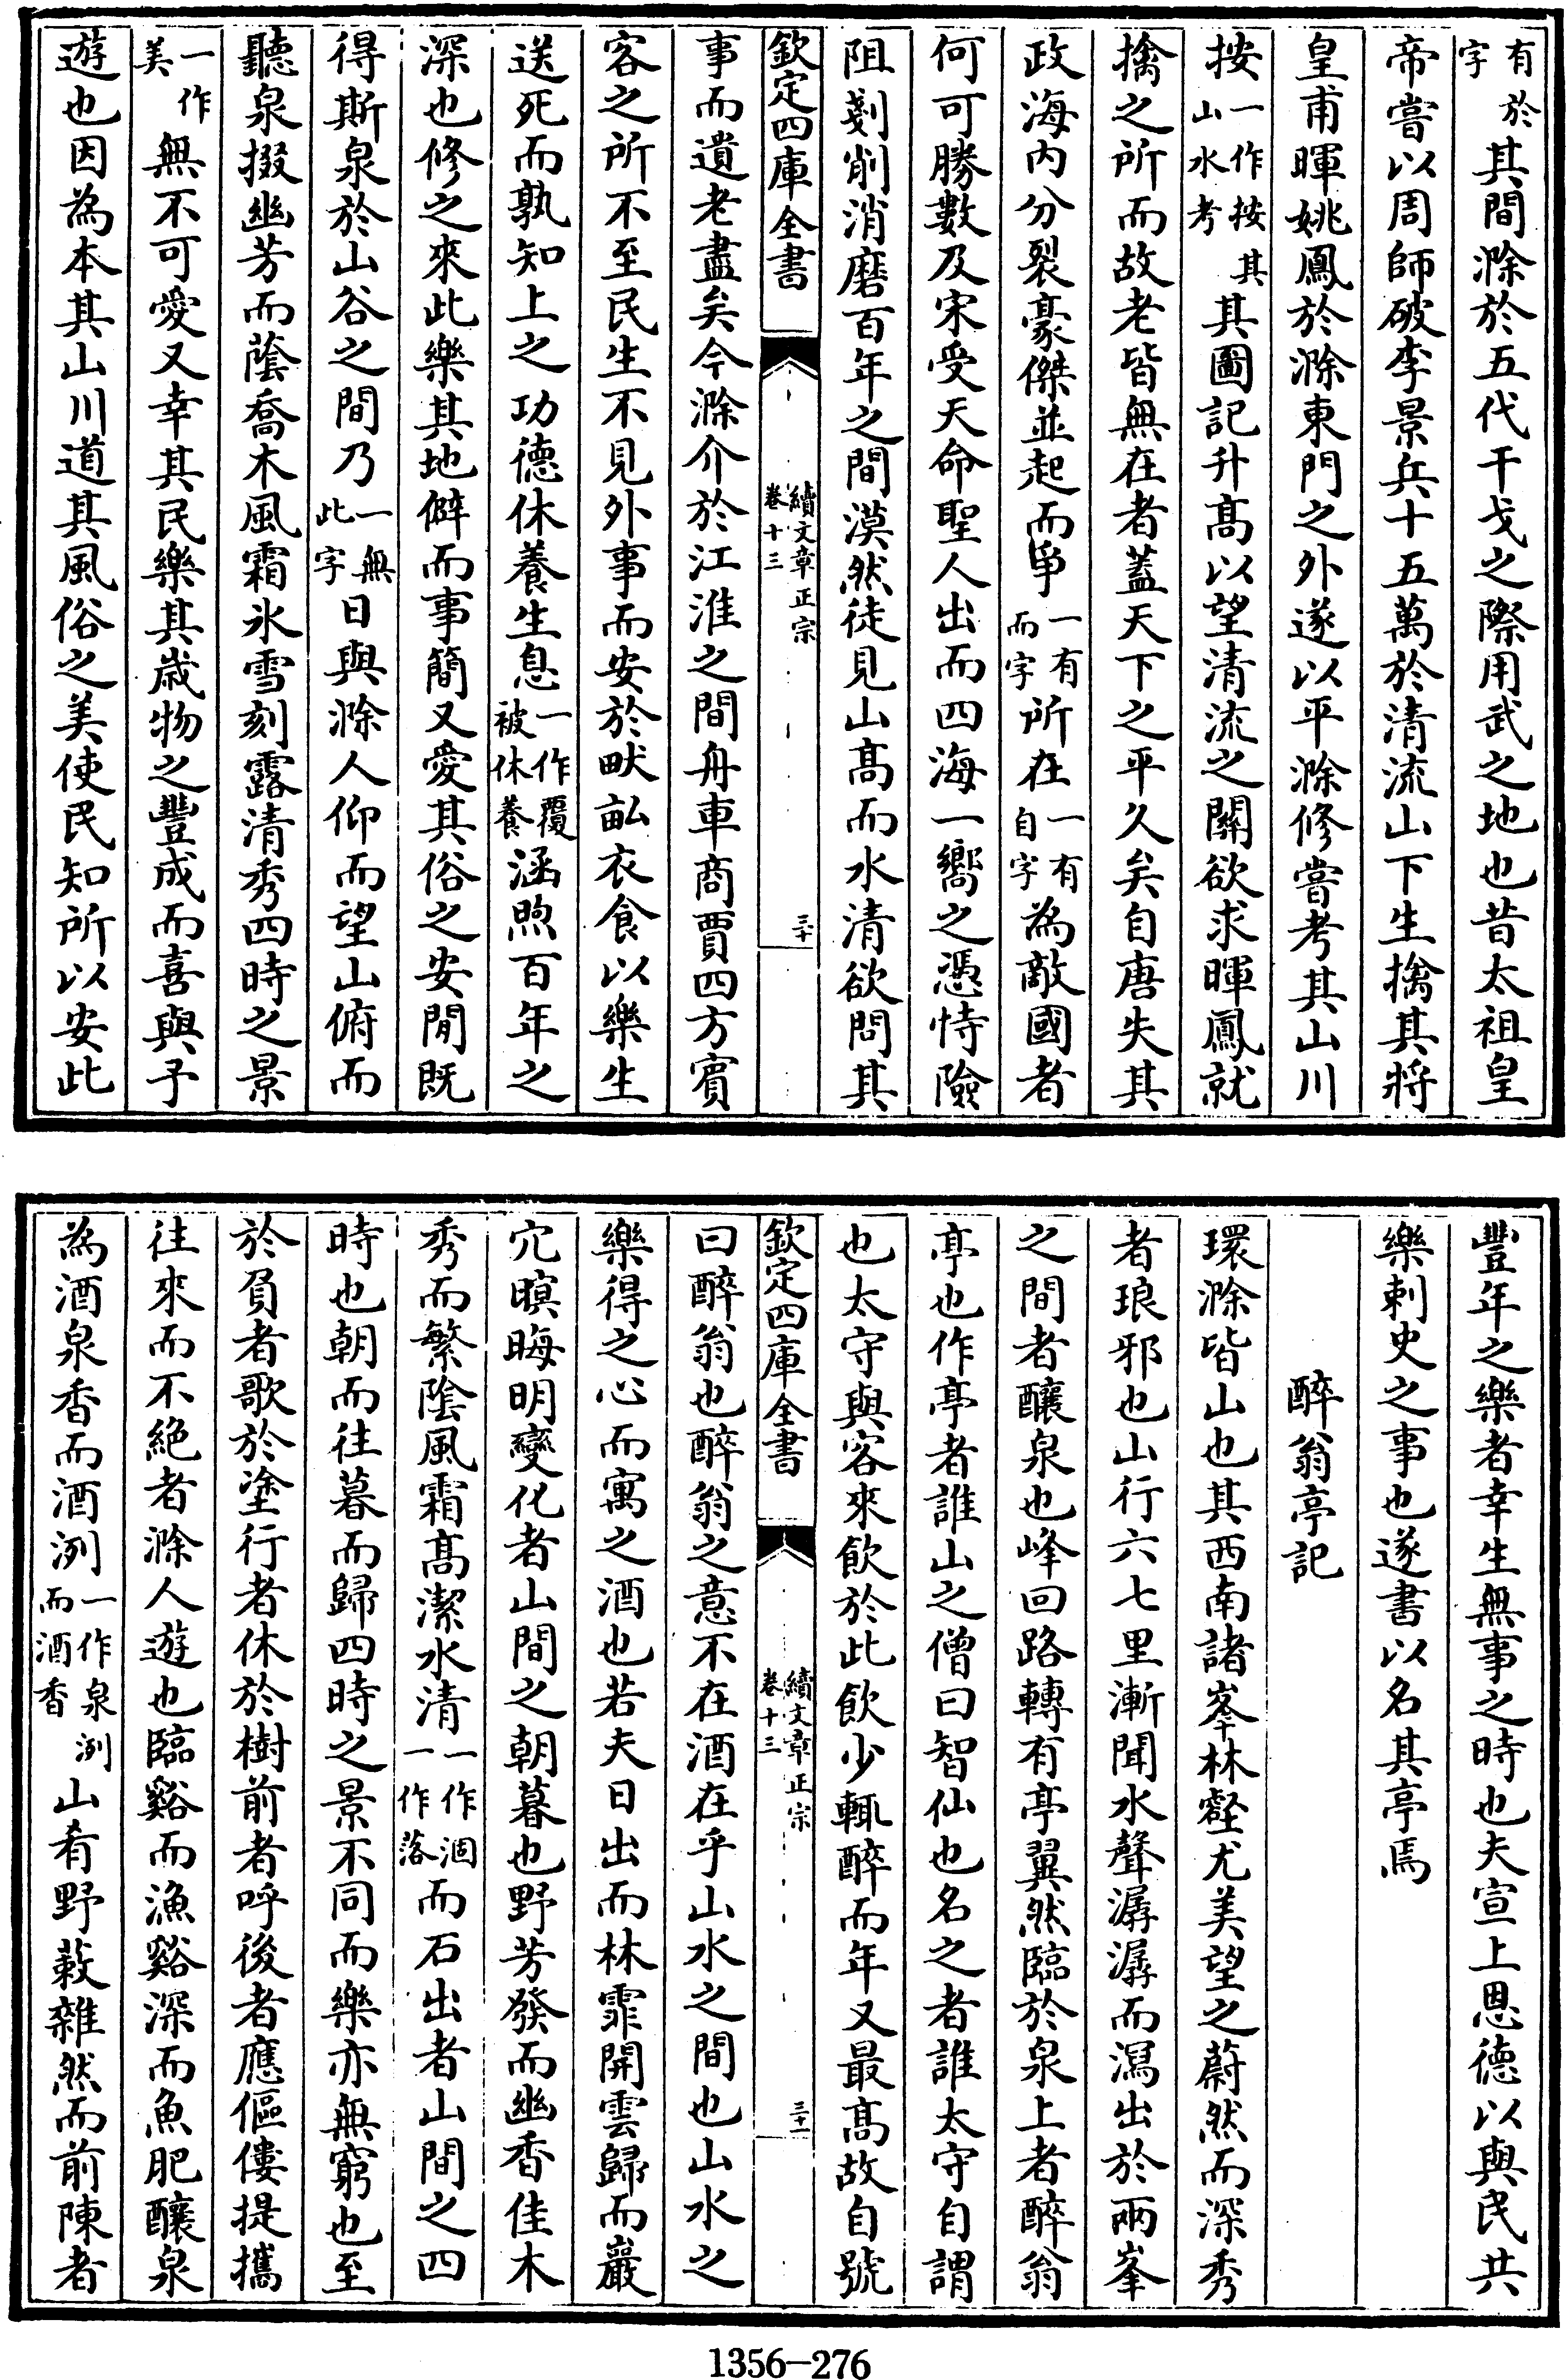 有於字其間滁於五代干戈之際用武之地也昔太祖皇
帝嘗以周師破李景兵十五萬於清流山下生擒其將
皇甫暉姚鳳於滁東門之外遂以平滁修嘗考其山川
按一作按其山水考其圖記升髙以望清流之關欲求暉鳳就
擒之所而故老皆無在者蓋天下之平久矣自唐失其
政海内分裂豪傑並起而爭一有而字所在一有自字為敵國者
何可勝數及宋受天命聖人出而四海一嚮之憑恃險
阻剗削消磨百年之間漠然徒見山髙而水清欲問其
欽定四庫全書
續文章正宗
卷十三
三十
事而遺老盡矣今滁介於江淮之間舟車商賈四方賓
客之所不至民生不見外事而安於畎畝衣食以樂生
送死而孰知上之功德休養生息一作覆被休養涵煦百年之
深也修之來此樂其地僻而事簡又愛其俗之安閒既
得斯泉於山谷之間乃一無此字日與滁人仰而望山俯而
聽泉掇幽芳而蔭喬木風霜氷雪刻露清秀四時之景
一作美無不可愛又幸其民樂其歲物之豐成而喜與予
遊也因為本其山川道其風俗之美使民知所以安此
豐年之樂者幸生無事之時也夫宣上恩德以與民共
樂刺史之事也遂書以名其亭焉
醉翁亭記
環滁皆山也其西南諸峯林壑尤美望之蔚然而深秀
者琅邪也山行六七里漸聞水聲潺潺而瀉出於兩峯
之間者釀泉也峰回路轉有亭翼然臨於泉上者醉翁
亭也作亭者誰山之僧曰智仙也名之者誰太守自謂
也太守與客來飲於此飲少輒醉而年又最髙故自號
欽定四庫全書
續文章正宗
卷十三
三十一
曰醉翁也醉翁之意不在酒在乎山水之間也山水之
樂得之心而寓之酒也若夫日出而林霏開雲歸而巖
穴暝晦明變化者山間之朝暮也野芳發而幽香佳木
秀而繁陰風霜髙潔水清一作涸一作落而石出者山間之四
時也朝而往暮而歸四時之景不同而樂亦無窮也至
於負者歌於塗行者休於樹前者呼後者應傴僂提攜
往來而不絕者滁人遊也臨谿而漁谿深而魚肥釀泉
為酒泉香而酒洌一作泉洌而酒香山肴野蔌雜然而前陳者
1356-276